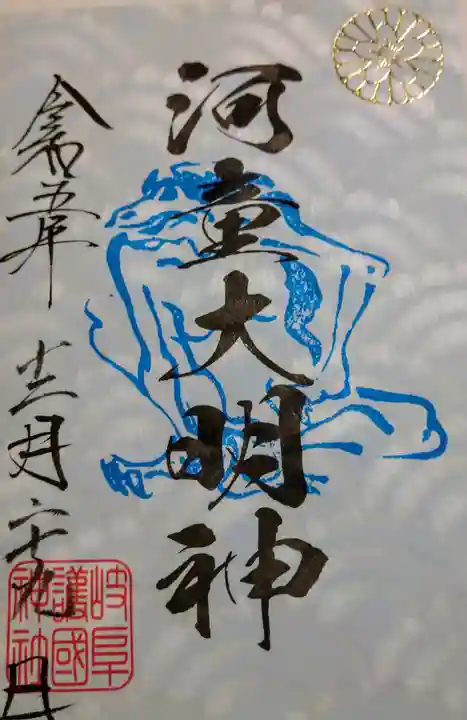 河童大明神
令和五年 十二月二十九日
岐阜
護國
神社